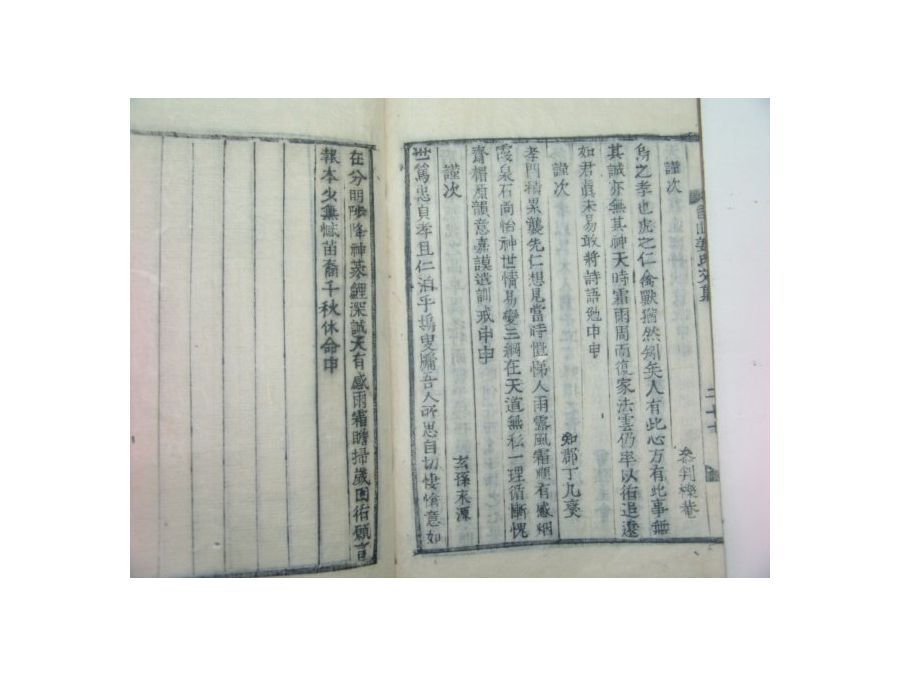 謹次
參判樵巷
烏之孝也虎之仁禽獸猶然矧矣人有此心方有此事無
其誠亦無其神天時霜雨周而復家法雲仍率以循追遠
如君眞未易敢將詩語勉申申
謹次
知郡丁凡燮
孝門積累襲先仁想見當時愷悌人雨露風霜頻有感烟
霞泉石尚怡神世情易變三綱在天道無私一理循斷愧
齊楣原韻意嘉謨遺訓戒申申
謹次
玄孫來源
世篤忠自孝且仁治乎搗叟牖吾人所思自切悽愴意如
在分明陟降神蒸鯉深誠天有感雨霜瞻掃歲回循願言
報本少無憾苗裔千秋休命申